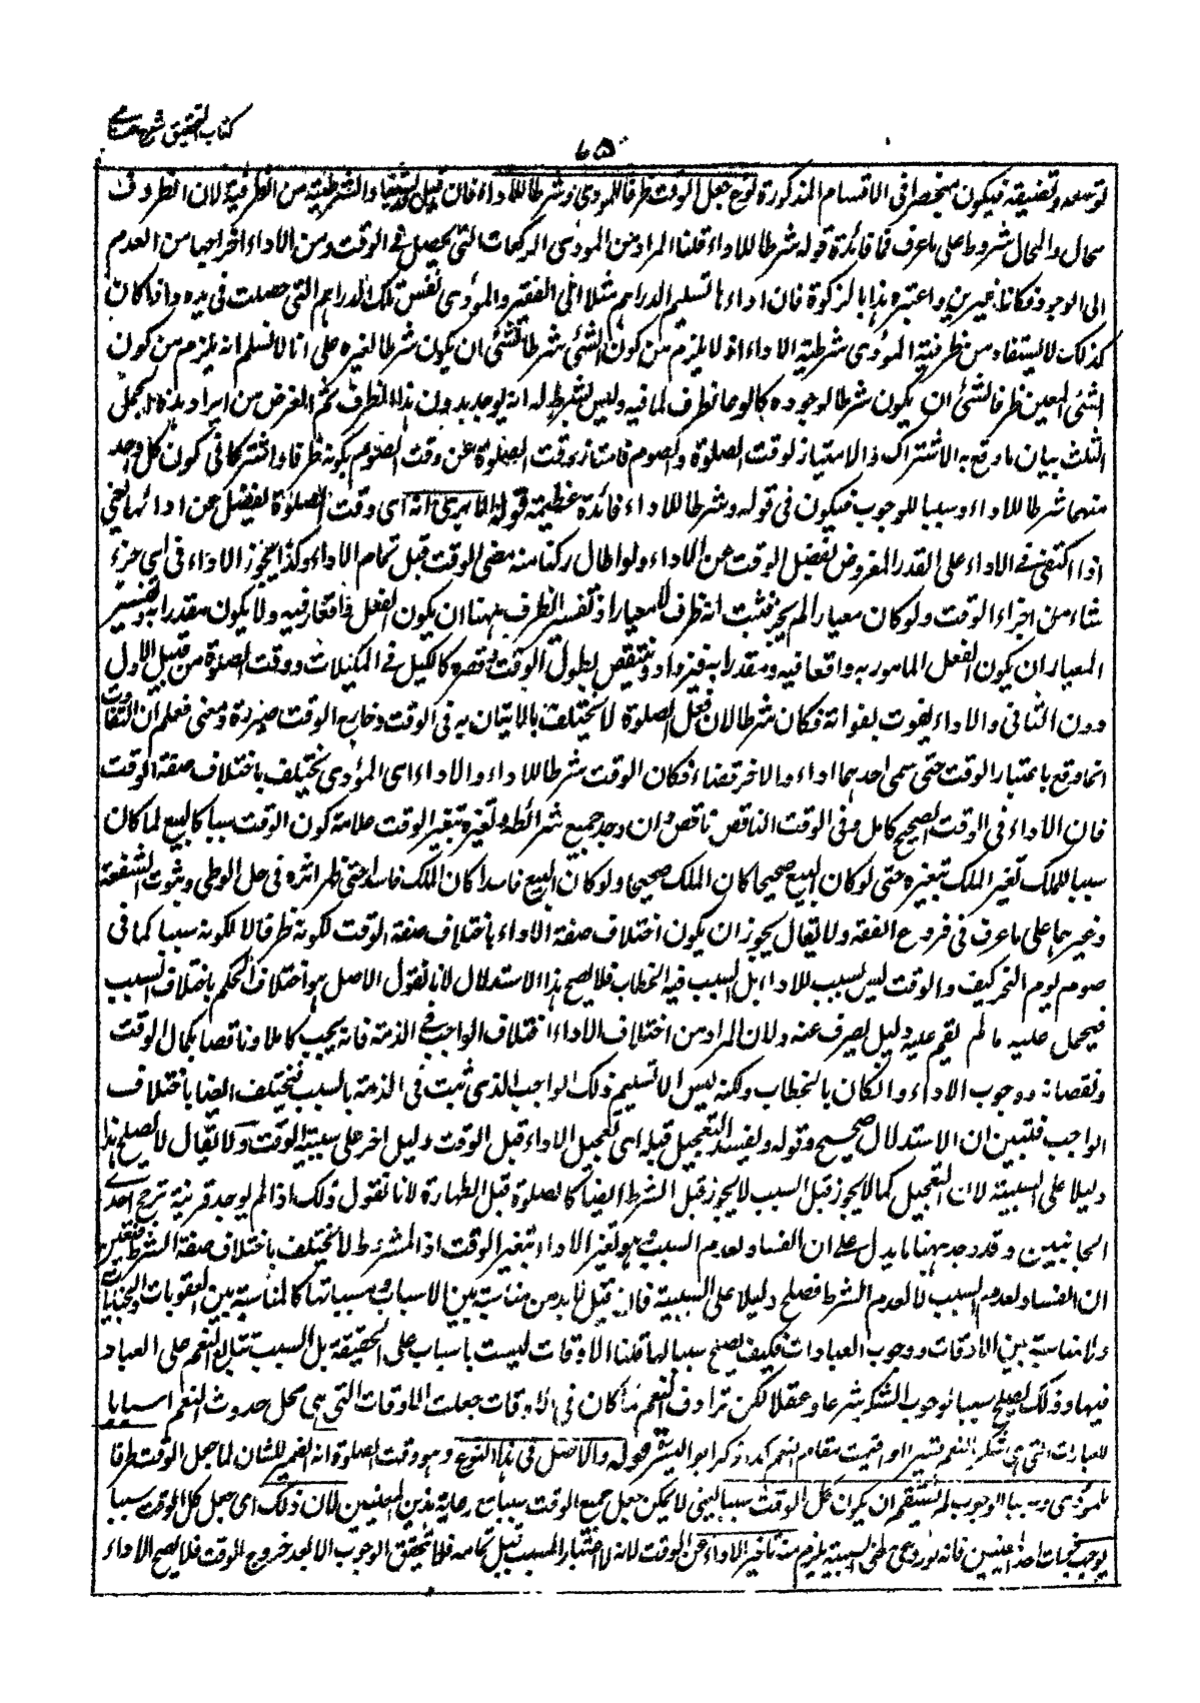 كتاب التحقيق شرح حسامى
٦٥
توسعه وتضييقه فيكون منحصرا فى الاقسام المذكورة نوع جعل الوقت ظرفا للمودى وشرطا للاداء فان قيل والشرطية من الظرفية لان الظروف
محال والمحال شروط على ما عرف فما فائدة قوله شرطا للاداء قلنا المراد من المودى الركعات التى يحصل فى الوقت ومن الاداء اخراجها من العدم
الى الوجود فكانا غيرين واعتبر هذا بالزكوة فان اداءها تسليم الدراهم مثلا الى الفقير والمؤدى نفس تلك الدراهم التى حصلت فى يده واذا كان
كذلك لا يستفاد من ظرفية المؤدى شرطية الاداء اذ لا يلزم من كون الشئ شرطا لشئ ان يكون شرطا لغيره على انا لا نسلم انه يلزم من كون
الشئ المعين ظرفا لشئ ان يكون شرطا لوجوده كالوعاء ظرف لما فيه وليس بشرط له انه يوجد بدون هذا الظرف ثم الغرض من ايراد هذه الجمل
الثلث بيان ما وقع به الاشتراك والامتياز لوقت الصلوة والصوم فامتاز وقت الصلوة عن وقت الصوم بكونه ظرفا واشتركا فى كون كل واحد
منهما شرطا للاداء وسببا للوجوب فيكون فى قوله وشرطا للاداء فائدة عظيمة قوله الا يرى انه اى وقت الصلوة يفضل عن ادائها يعنى
اذا اكتفى فى الاداء على القدر المفروض يفضل الوقت عن الاداء ولو اطال ركنا منه مضى الوقت قبل تمام الاداء وكذا يجوز الاداء فى اى جزء
شاء من اجزاء الوقت ولو كان معيارا لم يجز فثبت انه ظرف لا معيار اذ تفسير الظرف ههنا ان يكون الفعل واقعا فيه ولا يكون مقدرا به وتفسير
المعيار ان يكون الفعل المامور به واقعا فيه ومقدرا به فيزداد وينتقص بطول الوقت وقصره كالكيل فى المكيلات ووقت الصلوة من قبيل الاول
دون الثانى والاداء يفوت بفواته فكان شرطا لان فعل الصلوة لا يختلف بالاتيان به فى الوقت وخارج الوقت صورة ومعنى فعلم ان التفاوت
انما وقع باعتبار الوقت حتى سمى احدهما اداء والاخر قضاء فكان الوقت شرطا للاداء والاداء اى المؤدى يختلف باختلاف صفة الوقت
فان الاداء فى الوقت الصحيح كامل وفى الوقت الناقص ناقص وان وجد جميع شرائطه وتغيره بتغير الوقت علامة كون الوقت سببا كالبيع لما كان
سببا للملك تغير الملك بتغيره حتى لو كان البيع صحيحا كان الملك صحيحا ولو كان البيع فاسدا كان الملك فاسدا حتى ظهر اثره فى حل الوطى وثبوت الشفعة
وغيرهما على ما عرف فى فروع الفقه ولا يقال يجوز ان يكون اختلاف صفة الاداء باختلاف صفة الوقت لكونه ظرفا لا لكونه سببا كما فى
صوم يوم النحر كيف والوقت ليس بسبب للاداء بل السبب فيه الخطاب فلا يصح هذا الاستدلال لانا نقول الاصل هو اختلاف الحكم باختلاف السبب
فيحمل عليه ما لم يقم عليه دليل يصرف عنه ولان المراد من اختلاف الاداء اختلاف الواجب فى الذمة فانه يجب كاملا وناقصا بكمال الوقت
ونقصانه ووجوب الاداء وان كان بالخطاب ولكنه ليس الا تسليم ذلك الواجب الذى ثبت فى الذمة بالسبب فيختلف ايضا باختلاف
الواجب فتبين ان الاستدلال صحيح وقوله ويفسد التعجيل قبله اى تعجيل الاداء قبل الوقت دليل اخر على سببية الوقت ولا يقال لا يصلح هذا
دليلا على السببية لان التعجيل كما لا يجوز قبل السبب لا يجوز قبل الشرط ايضا كالصلوة قبل الطهارة لانا نقول ذلك اذا لم يوجد قرينة ترجح احدى
الجانبين وقد وجد ههنا ما يدل على ان الفساد لعدم السبب وهو تغير الاداء بتغير الوقت اذ المشروط لا يختلف باختلاف صفة الشرط فتعين
ان الفساد لعدم السبب لا لعدم الشرط فصلح دليلا على السببية فان قيل لا بد من مناسبة بين الاسباب ومسبباتها كالمناسبة بين العقوبات والجنايات
ولا مناسبة بين الاوقات ووجوب العبادات فكيف يصلح سببا لها قلنا الاوقات ليست باسباب على الحقيقة بل السبب تتابع النعم على العباد
فيها وذلك يصلح سببا لوجوب الشكر شرعا وعقلا لكن ترادف النعم لما كان فى الاوقات جعلت الاوقات التى هى محل حدوث النعم اسبابا
للعبادات التى هى شكر النعم تيسيرا او اقيمت مقام النعم كذا ذكر ابو اليسر قوله والاصل فى هذا النوع وهو وقت الصلوة انه الضمير للشان لما جعل الوقت ظرفا
للمؤدى وسببا للوجوب لم يستقم ان يكون كل الوقت سببا يعنى لا يمكن جعل جميع الوقت سببا مع رعاية هذين المعنيين لان ذلك اى جعل كل الوقت سببا
يوجب فوات احد المعنيين فانه لو روعى معنى السببية يلزم منه تاخير الاداء عن الوقت لانه لا اعتبار للسبب قبل تمامه فلا يتحقق الوجوب الا بعد خروج الوقت فلا يصح الاداء